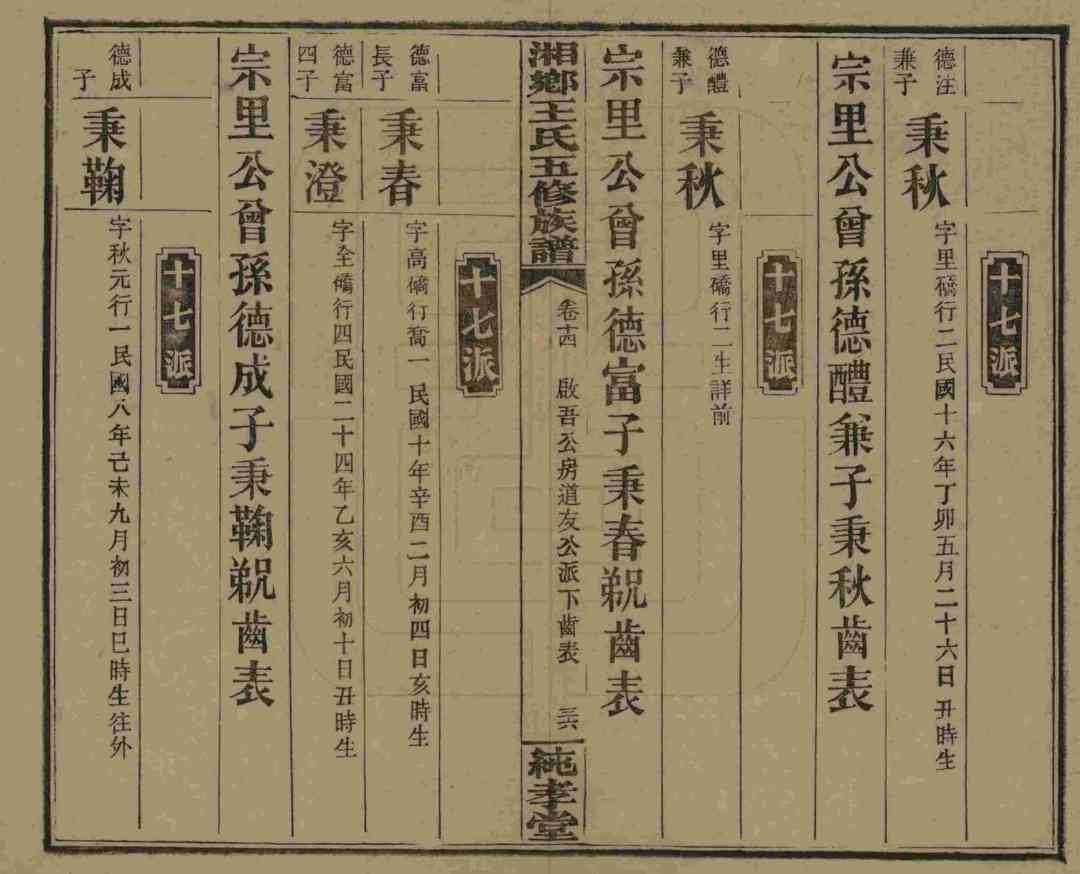 十七派
德注兼子
秉秋
字里礄行二民國十六年丁卯五月二十六日丑時生
宗里公曾孫德醴兼子秉秋齒表
十七派
德醴兼子
秉秋
字里礄行二生詳前
宗里公曾孫德富子秉春覡齒表
湘鄉王氏五修族譜
卷十四 啟吾公房道友公派下齒表 三六
純孝堂
十七派
德富長子
秉春
字高礄行喬一 民國十年辛酉二月初四日亥時生
德富四子
秉澄
字全礄行四民國二十四年乙亥六月初十日丑時生
宗里公曾孫德成子秉鞠覡齒表
十七派
德成子
秉鞠
字秋元行一民國八年己未九月初三日巳時生往外